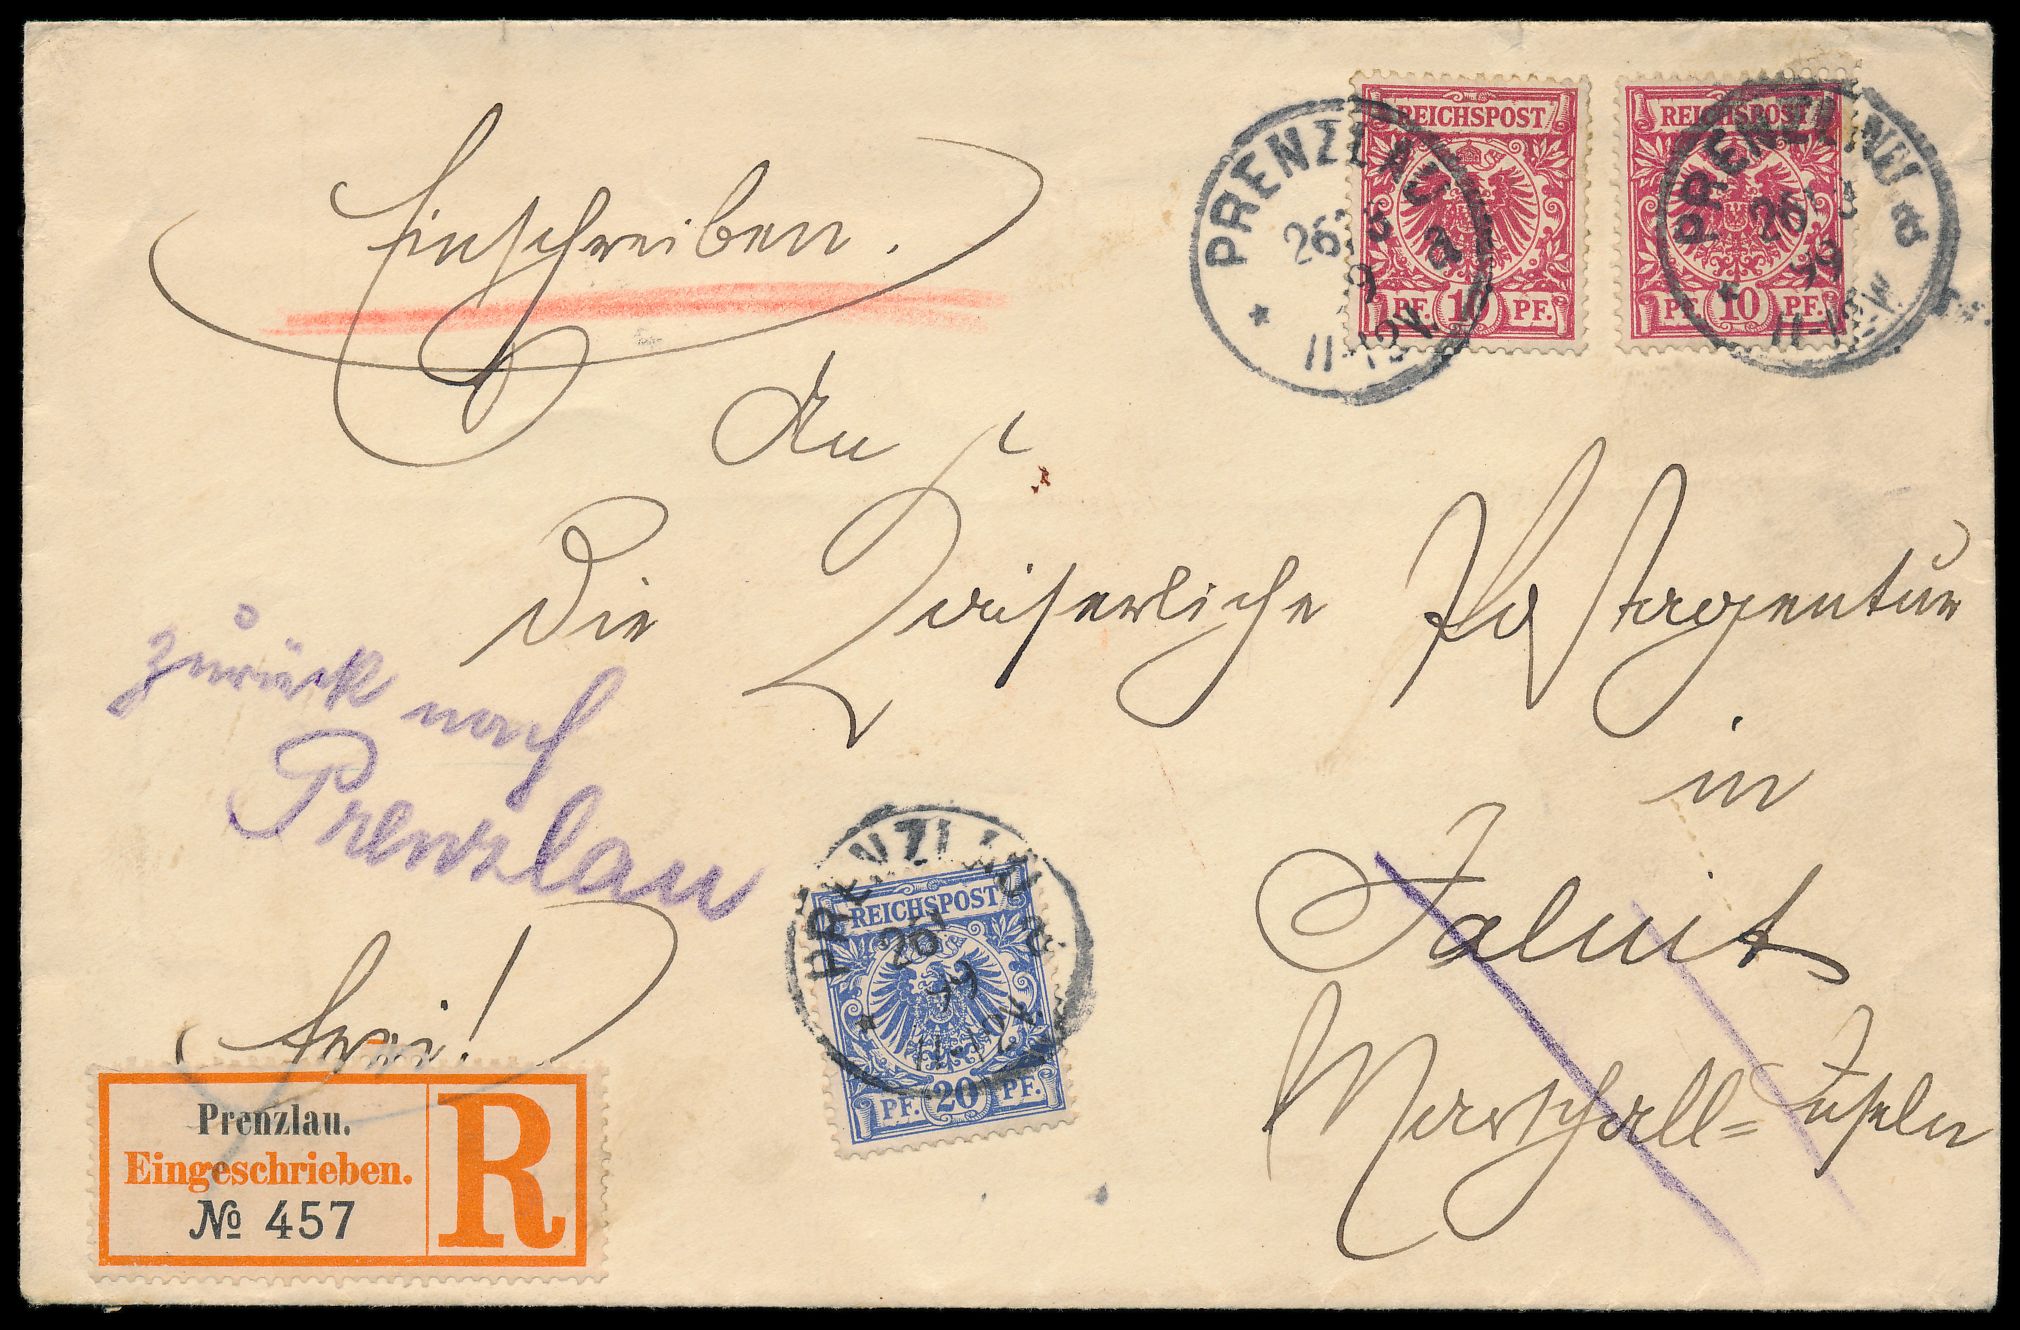 REICHSPOST
PF. 10 PF.
REICHSPOST
PF. 10 PF.
PRENZLAU a
26
11-12V
PRENZLAU a
26
99
11-12V
Einschreiben.
An
die Kaiserliche Postagentur
in
Jaluit
Marschall=Inseln
zurück nach
Prenzlau
frei!
PRENZLAU a
26
99
11-12V
REICHSPOST
PF. 20 PF.
Prenzlau.
Eingeschrieben.
№ 457
R